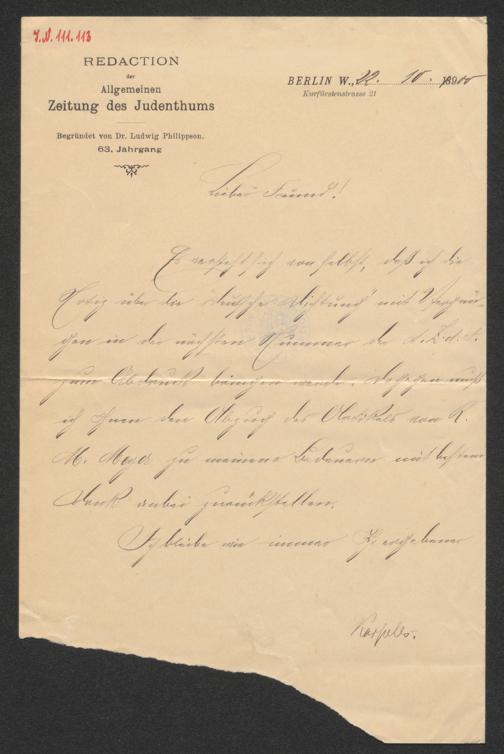 J.N. 111.113
REDACTION
der
Allgemeinen
Zeitung des Judenthums
Begründet von Dr. Ludwig Philippson.
63. Jahrgang
BERLIN W., 22. 10. 1900
Kurfürstenstrasse 21
Lieber Freund!
Es versteht sich von selbst, daß ich die
Notiz über die "deutsche Dichtung" mit Vergnü-
gen in der nächsten Nummer der A. Z. d. J.
zum Abdruck bringen werde. Dagegen muß
ich Ihnen den Abzug des Artikels von R.
M. Meyer zu meinem Bedauern mit bestem
Dank anbei zurückstellen.
Ich bleibe wie immer Ihr ergebener
Karpeles.